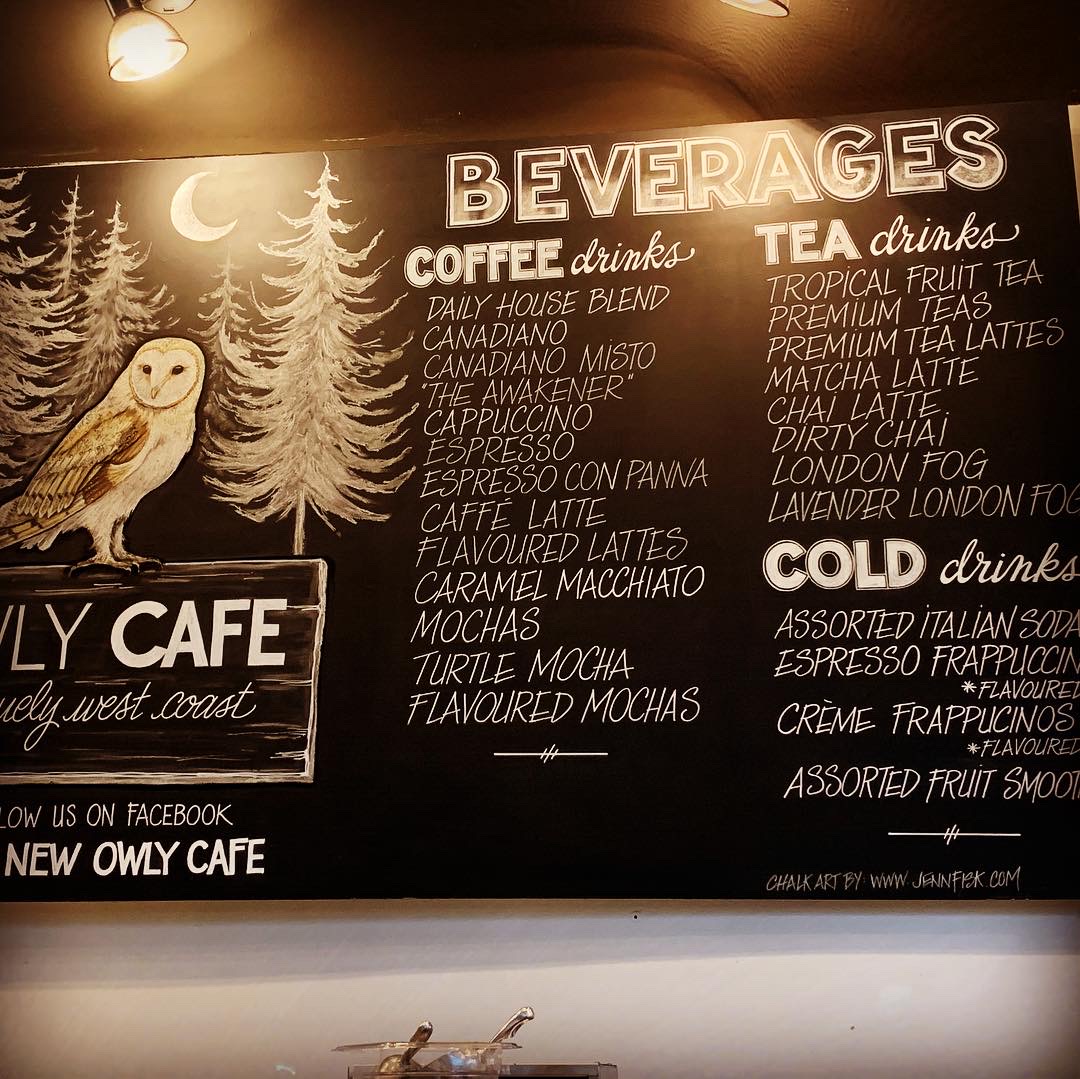 BEVERAGES
COFFEE drinks
DAILY HOUSE BLEND
CANADIANO
CANADIANO MISTO
"THE AWAKENER"
CAPPUCCINO
ESPRESSO
ESPRESSO CON PANNA
CAFFÉ LATTE
FLAVOURED LATTES
CARAMEL MACCHIATO
MOCHAS
TURTLE MOCHA
FLAVOURED MOCHAS
TEA drinks
TROPICAL FRUIT TEA
PREMIUM TEAS
PREMIUM TEA LATTES
MATCHA LATTE
CHAI LATTE
DIRTY CHAI
LONDON FOG
LAVENDER LONDON FOG
COLD drinks
ASSORTED ITALIAN SODA
ESPRESSO FRAPPUCCIN
*FLAVOURED
CRÈME FRAPPUCINOS
*FLAVOURED
ASSORTED FRUIT SMOOT
CHALK ART BY: WWW.JENNFISK.COM
WLY CAFE
uely west coast
LOW US ON FACEBOOK
NEW OWLY CAFE